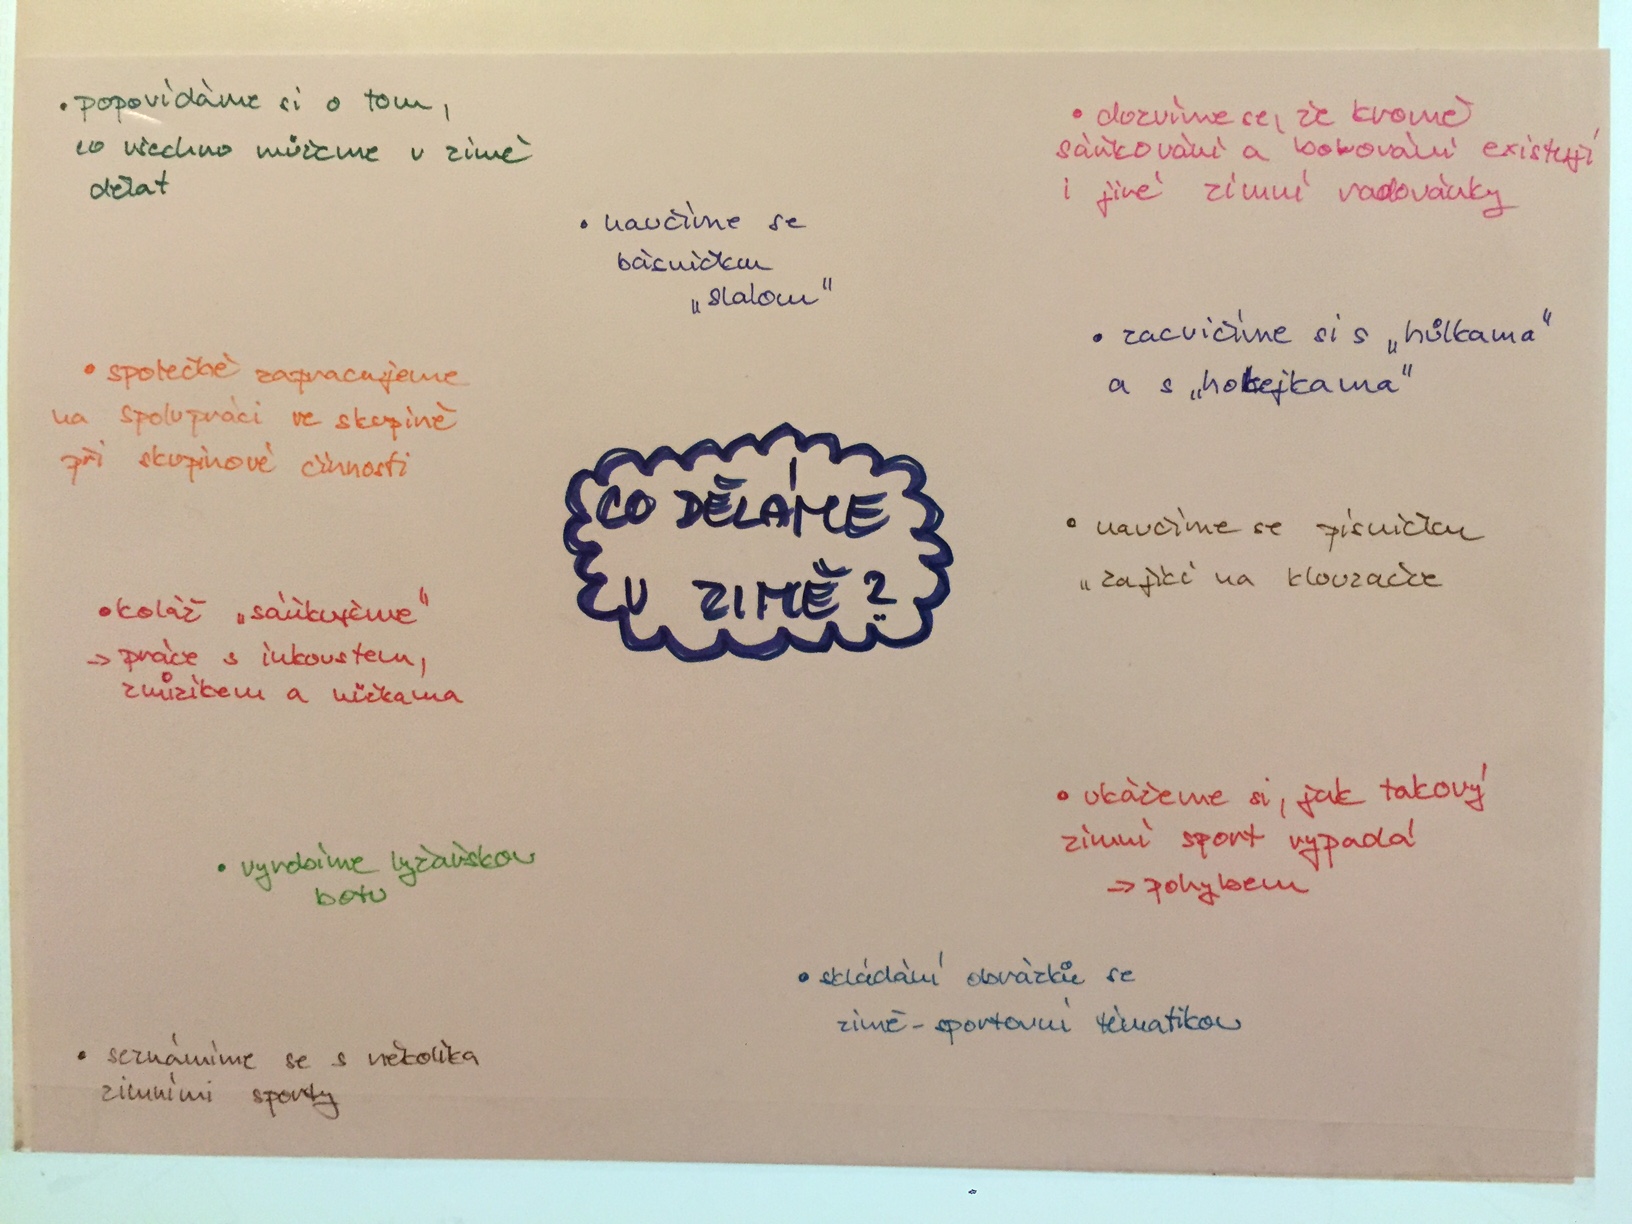 • popovídáme si o tom,
co všechno můžeme v zimě
dělat
• naučíme se
básničku
„slalom“
• dozvíme se, že kromě
sáňkování a bobování existují
i jiné zimní radovánky
• zacvičíme si s „hůlkama“
a s „hokejkama“
• společně zapracujeme
na spolupráci ve skupině
při skupinové činnosti
CO DĚLÁME
V ZIMĚ?
• naučíme se písničku
„zajíci na klouzačce
• koláž „sáňkujeme“
→ práce s inkoustem,
zmizíkem a nůžkama
• ukážeme si, jak takový
zimní sport vypadá
→ pohybem
• vyrobíme lyžařskou
botu
• skládání obrázků se
zimě-sportovní tématikou
• seznámíme se s několika
zimními sporty